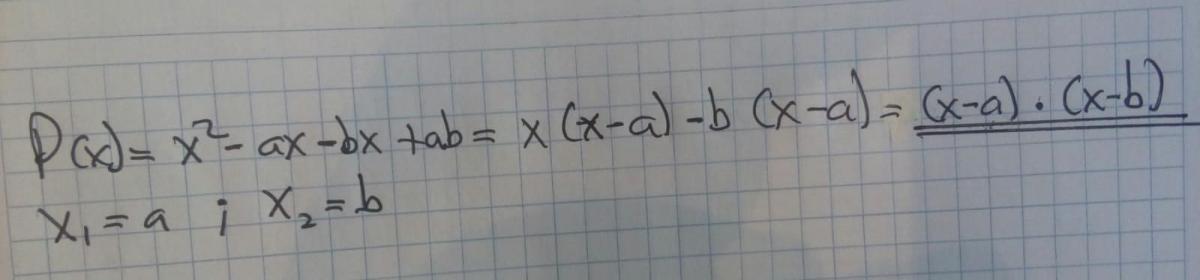 P(x)= x²- ax -bx +ab = x (x-a) -b (x-a) = (x-a) · (x-b)
x₁ = a ; x₂ = b